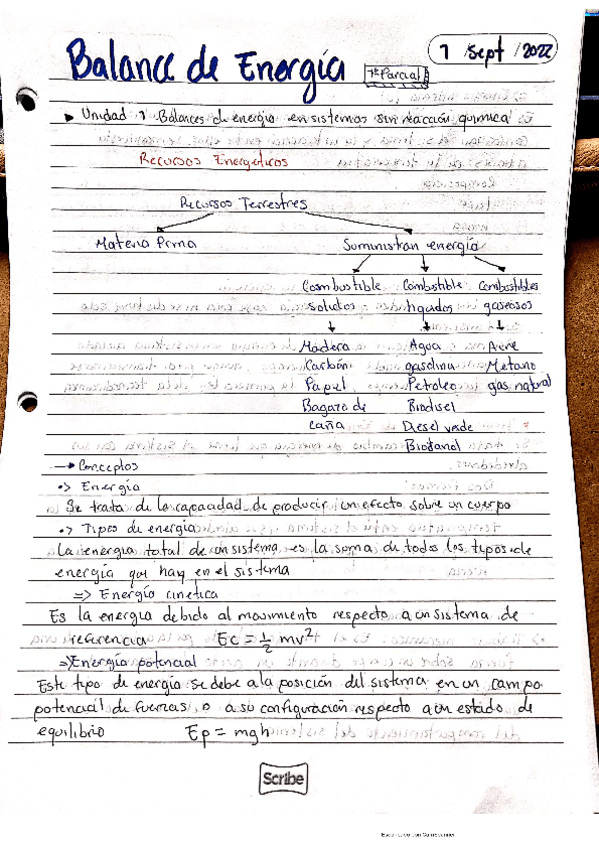 Balance de Energía
1er Parcial
1 / Sept / 2022
Unidad 1 Balances de energía en sistemas sin reacción química
Recursos Energeticos
Recursos Terrestres
Materia Prima Suministran energía
Combustible Combustible Combustibles
solidos liquidos gaseosos
Madera Agua Aire
Carbón gasolina Metano
Papel Petroleo gas natural
Bagazo de Biodisel
caña Diesel verde
Bioetanol
→ Conceptos
•> Energía
Se trata de la capacidad de producir un efecto sobre un cuerpo
•> Tipos de energía
La energía total de un sistema es la suma de todos los tipos de
energía que hay en el sistema
=> Energía cinetica
Es la energía debido al movimiento respecto a un sistema de
referencia Ec = 1/2 mv²
=> Energía potencial
Este tipo de energía se debe a la posición del sistema en un campo
potencial de fuerzas, o a su configuración respecto a un estado de
equilibrio Ep = mgh
Scribe
Escaneado con CamScanner